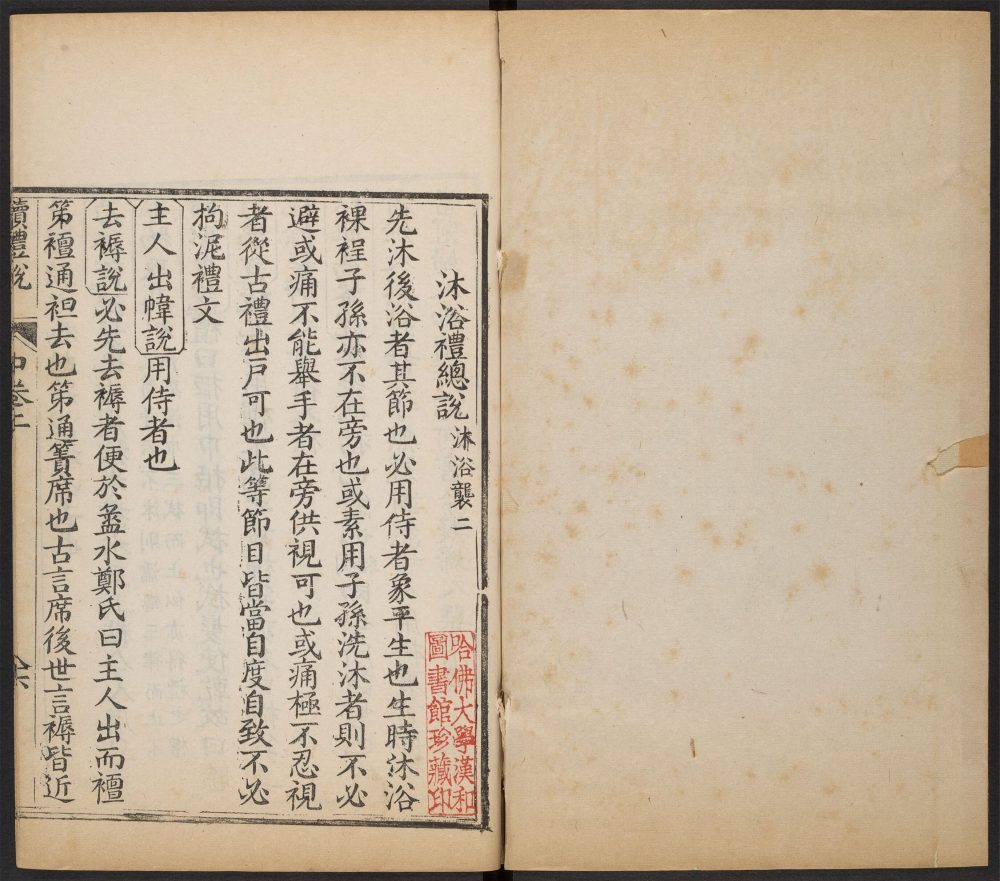 沐浴禮總說 沐浴襲二
先沐後浴者其節也必用侍者象平生也生時沐浴
裸裎子孫亦不在旁也或素用子孫洗沐者則不必
避或痛不能舉手者在旁供視可也或痛極不忍視
者從古禮出戸可也此等節目皆當自度自致不必
拘泥禮文
主人出幃說用侍者也
去褥說必先去褥者便於盝水鄭氏曰主人出而襢
第襢通袒去也第通簀席也古言席後世言褥皆近
讀禮說 中卷上
哈佛大學漢和
圖書館珍藏印